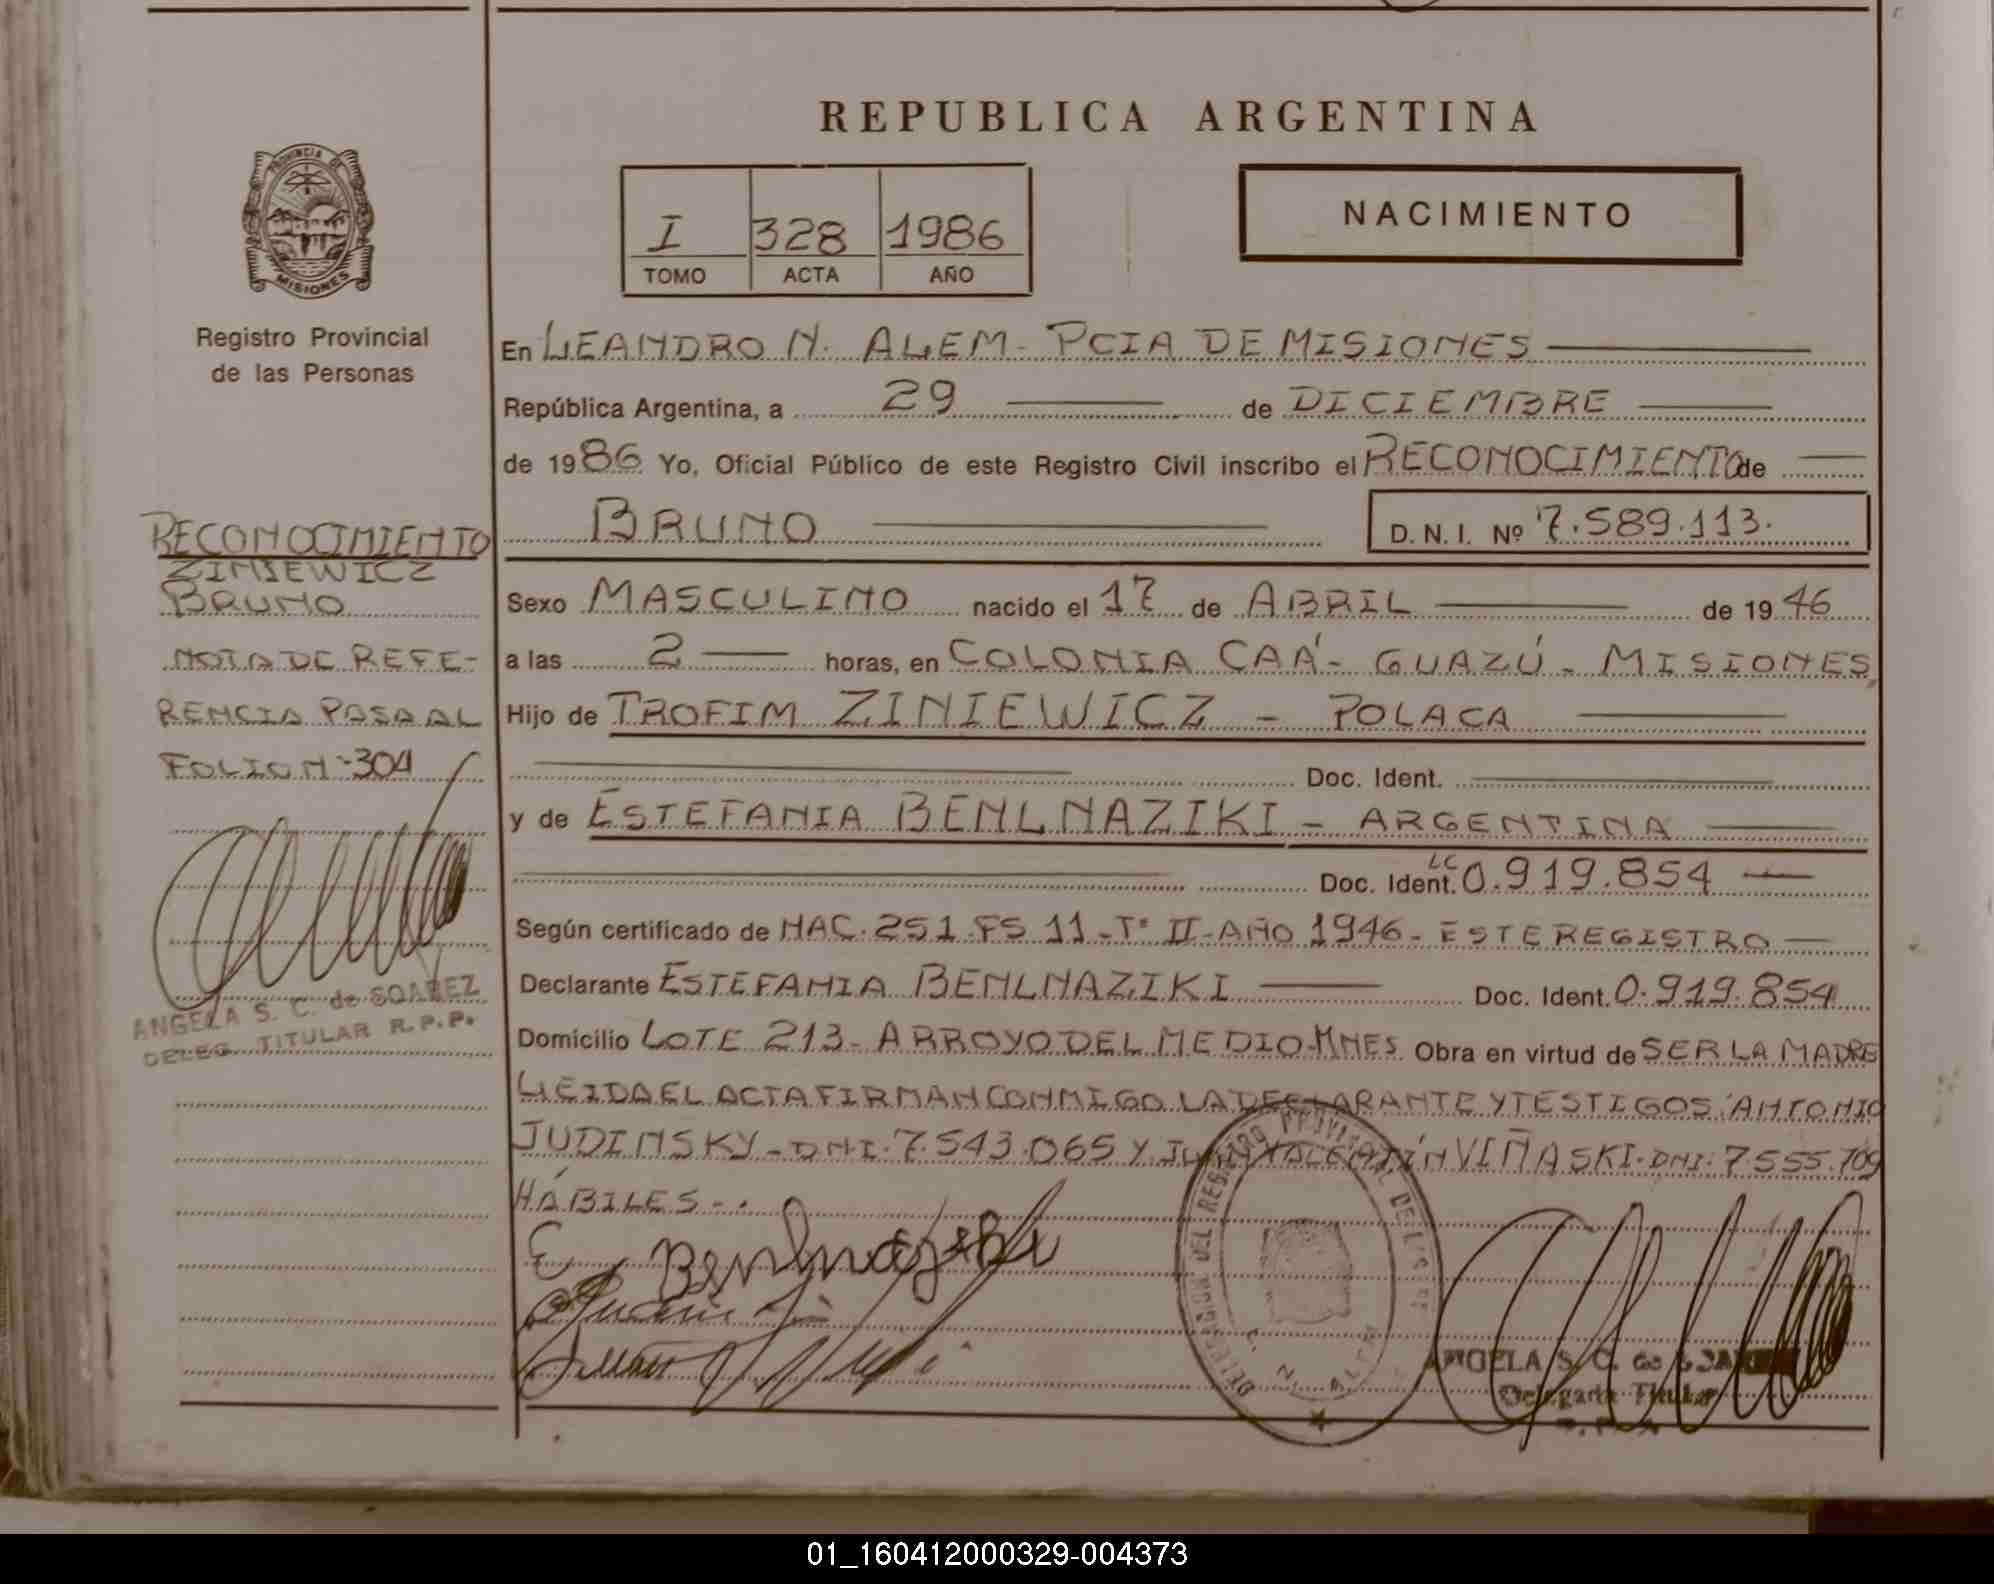 REPUBLICA ARGENTINA
PROVINCIA DE
MISIONES
Registro Provincial
de las Personas
I 328 1986
TOMO ACTA AÑO
NACIMIENTO
En LEANDRO N. ALEM - PCIA DE MISIONES
República Argentina, a 29 de DICIEMBRE
de 1986 Yo, Oficial Público de este Registro Civil inscribo el RECONOCIMIENTO de
BRUNO D.N.I. Nº 7.589.113.
Sexo MASCULINO nacido el 17 de ABRIL de 1946
a las 2 horas, en COLONIA CAÁ-GUAZÚ - MISIONES
Hijo de TROFIM ZINIEWICZ - POLACA
Doc. Ident.
y de ESTEFANIA BENLNAZIKI - ARGENTINA
Doc. Ident. LC 0.919.854
Según certificado de NAC. 251 FS 11 - Tº II - AÑO 1946 - ESTE REGISTRO
Declarante ESTEFANIA BENLNAZIKI Doc. Ident. 0.919.854
Domicilio LOTE 213 - ARROYO DEL MEDIO - MNES Obra en virtud de SER LA MADRE
LEIDA EL ACTA FIRMAN CONMIGO LA DECLARANTE Y TESTIGOS: ANTONIO
JUDINSKY - DNI. 7.543.065 Y JUAN VALENTÍN VIÑASKI - DNI. 7.555.709
HÁBILES - .
E Benlnaziki
RECONOCIMIENTO
ZINIEWICZ
BRUNO
NOTA DE REFE-
RENCIA PASA AL
FOLIO Nº 304
ANGELA S. C. de SOAREZ
DELEG. TITULAR R.P.P.
ANGELA S. C. de SOAREZ
Delegada Titular
01_160412000329-004373